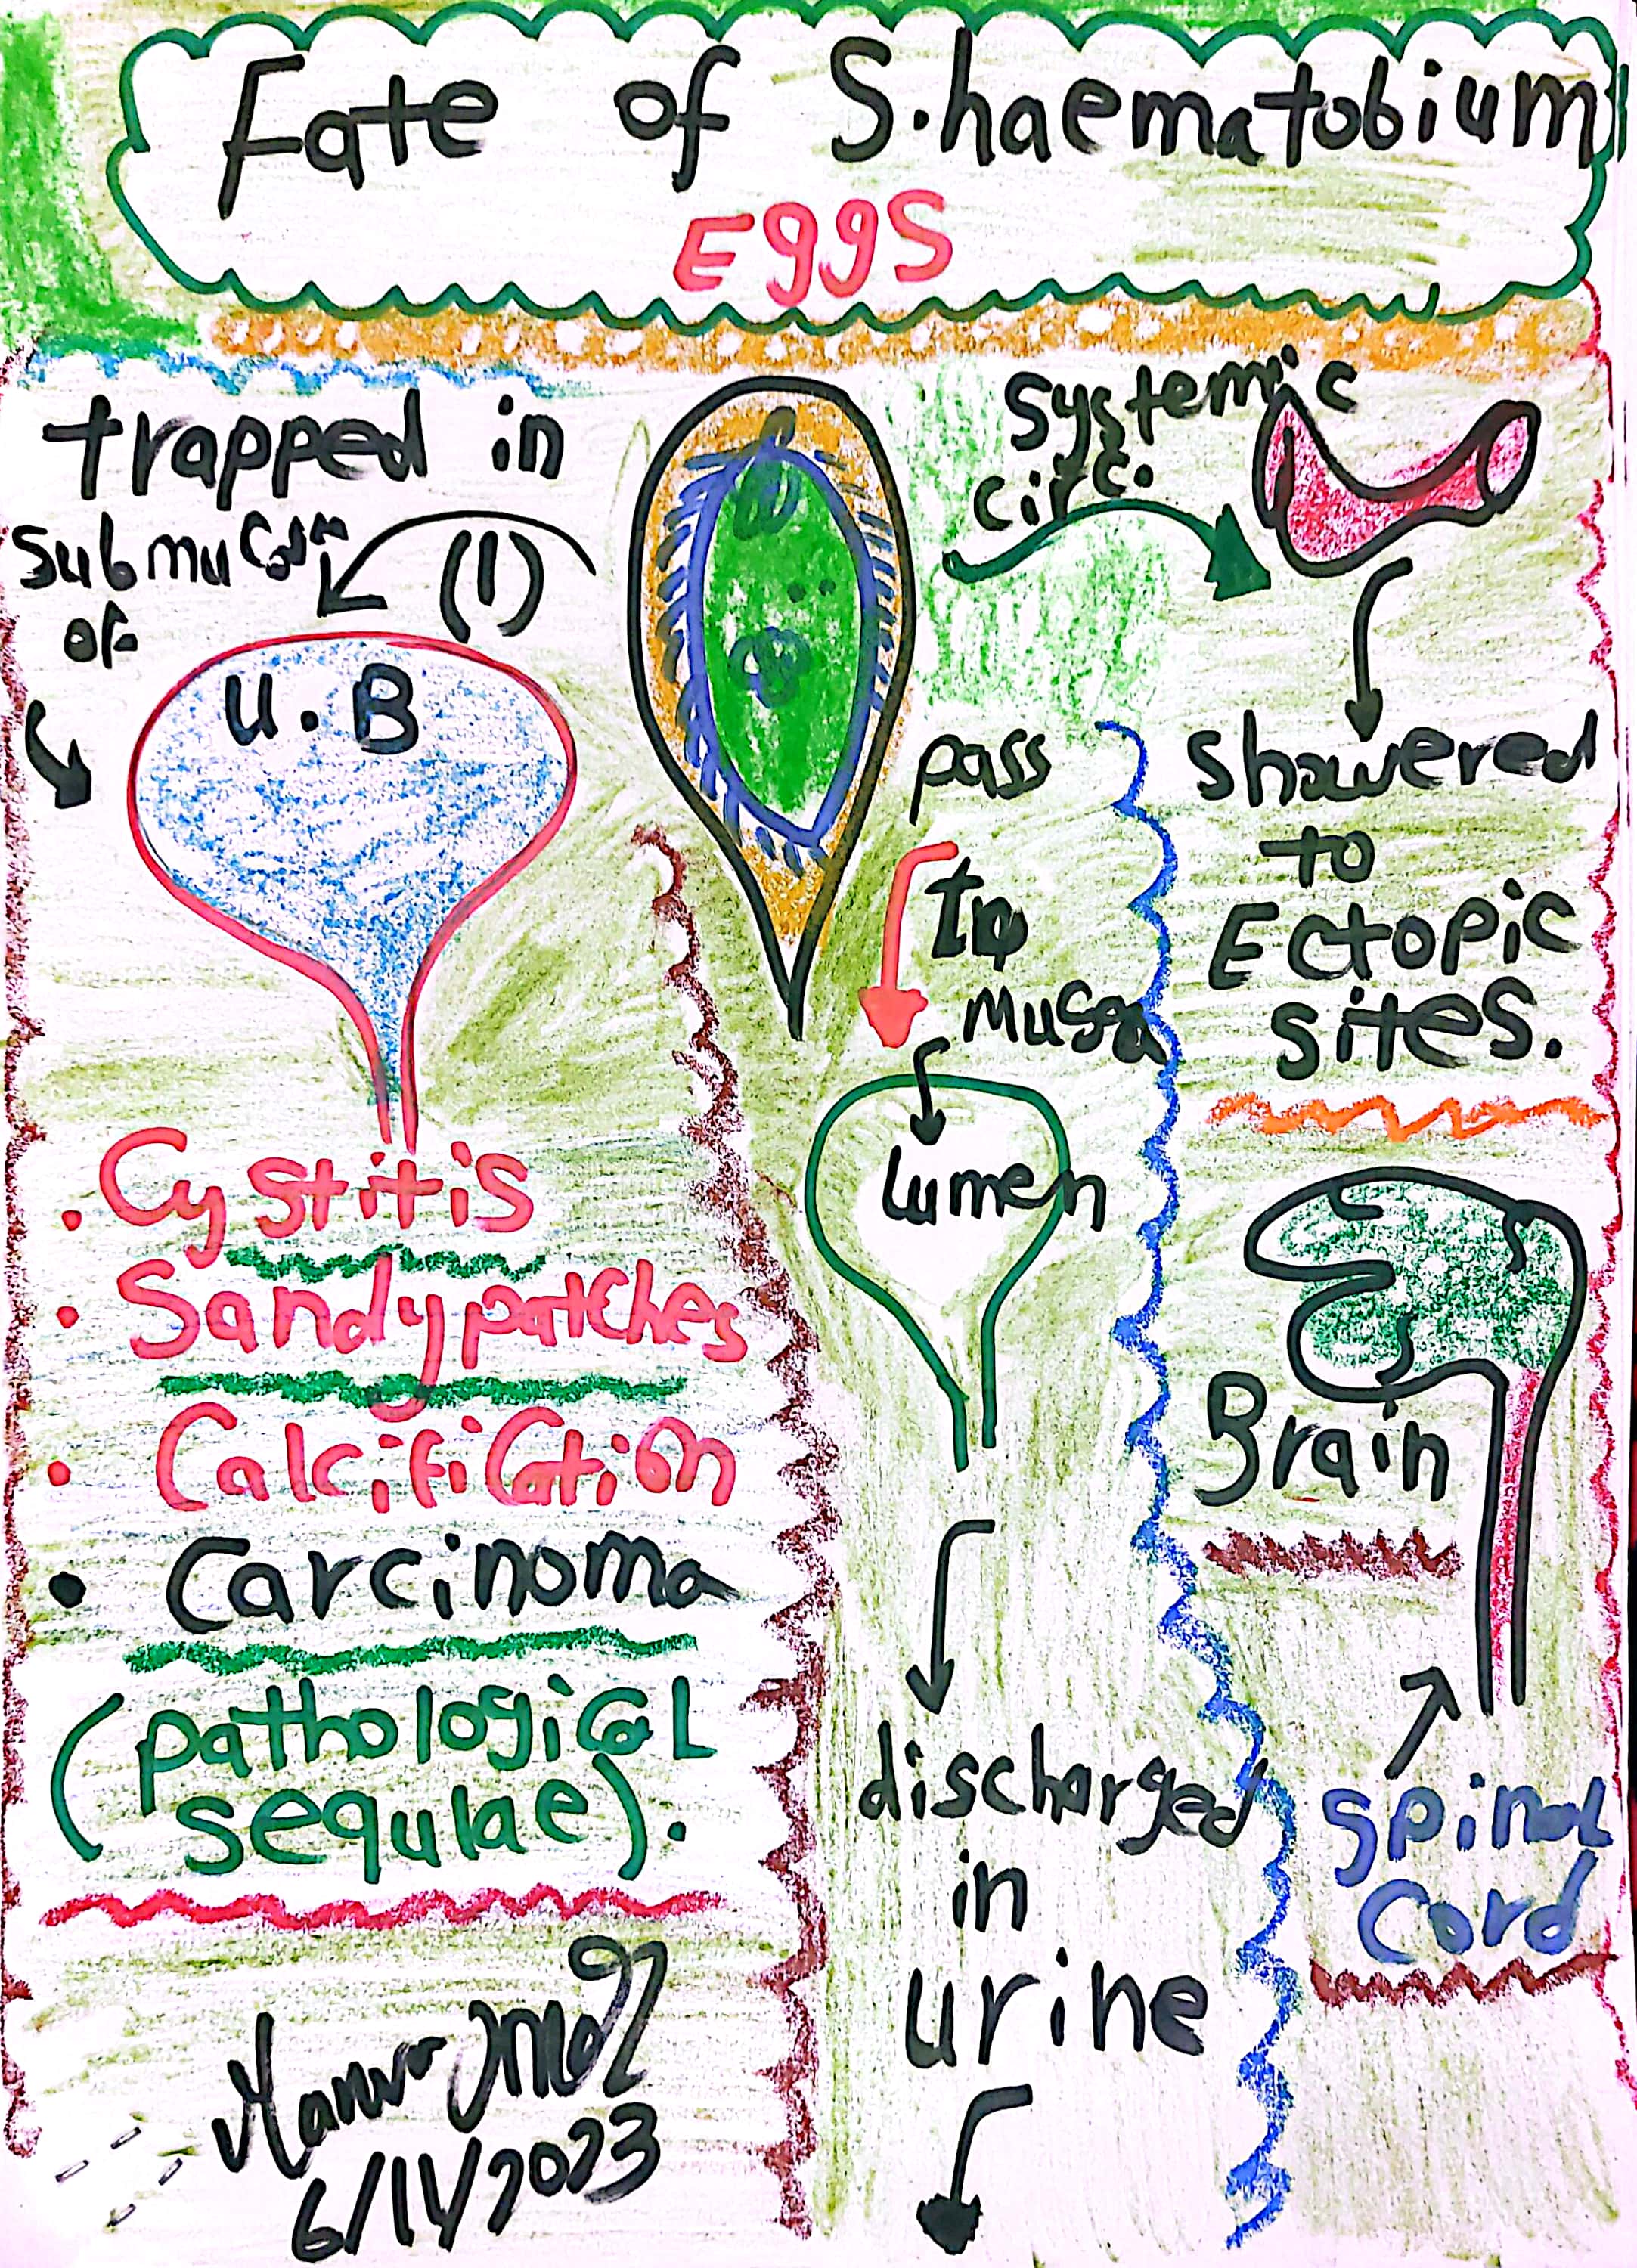 Fate of S.haematobium
Eggs
trapped in
submucosa
of
(1)
U.B
. Cystitis
. Sandy patches
. Calcification
• Carcinoma
(pathological
sequlae).
6/11/2023
pass
to
Mucosa
Lumen
discharged
in
urine
systemic
circ.
showered
to
Ectopic
sites.
Brain
spinal
cord